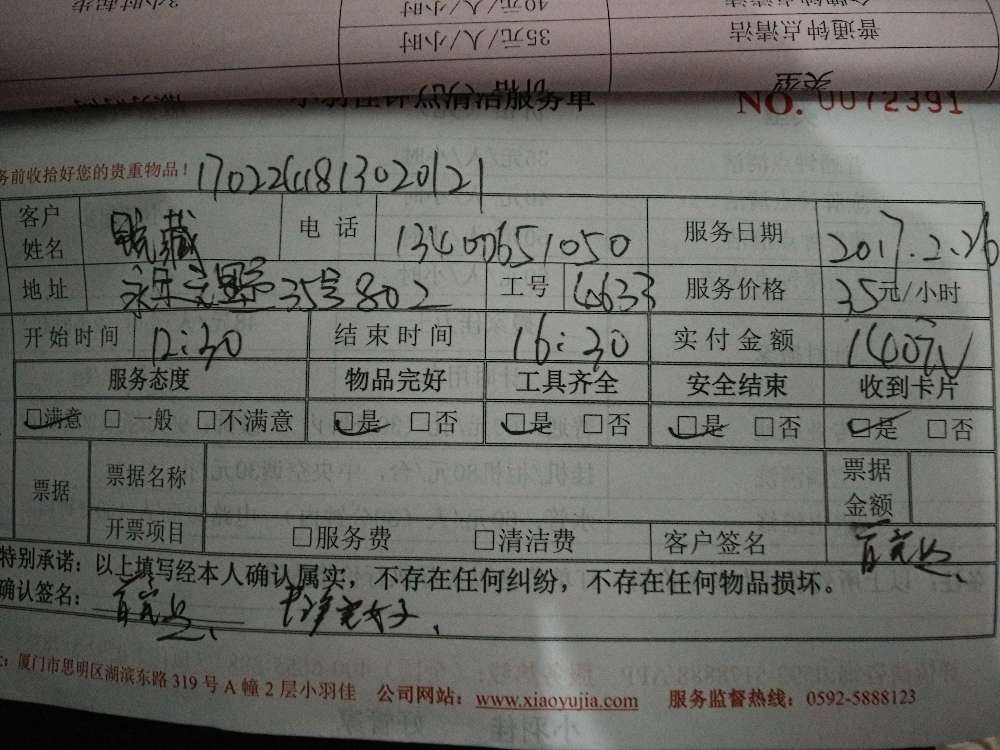 3小时起步
40元/人/小时
35元/人/小时
普通钟点清洁
点清洁服务单
NO. 0072391
务前收拾好您的贵重物品!
客户姓名
电话 13400651050
服务日期 2017.2.26
地址 35号802
工号 4633
服务价格 35元/小时
开始时间 12:30
结束时间 16:30
实付金额 140元
服务态度 物品完好 工具齐全 安全结束 收到卡片
□满意 □一般 □不满意 □是 □否 □是 □否 □是 □否 □是 □否
票据 票据名称 票据金额
开票项目 □服务费 □清洁费 客户签名
特别承诺:以上填写经本人确认属实,不存在任何纠纷,不存在任何物品损坏。
确认签名:
厦门市思明区湖滨东路 319 号 A 幢 2 层小羽佳 公司网站:www.xiaoyujia.com 服务监督热线:0592-5888123